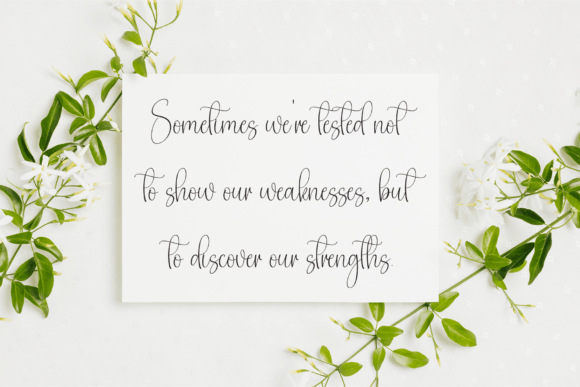 Sometimes we're tested not
to show our weaknesses, but
to discover our strengths.